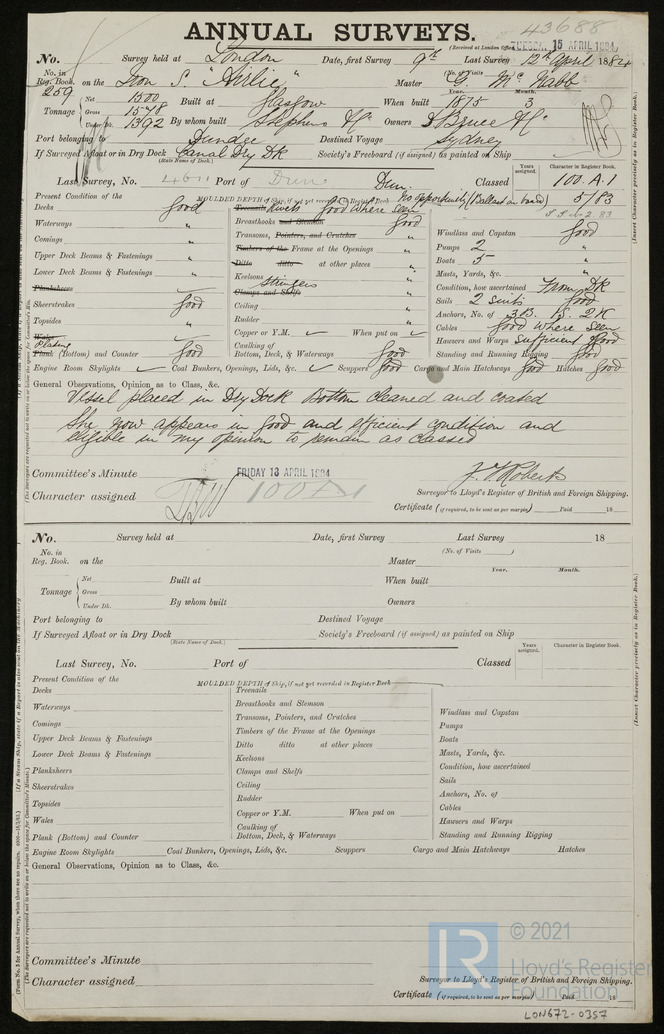 43688
ANNUAL SURVEYS.
(Received at London Office TUESDAY, 15 APRIL 1884
No. Survey held at London Date, first Survey 9th Last Survey 12th April 1884
(No. of Visits
No. in Reg. Book. 259 on the Iron S "Airlie" Master G. McNabb
Tonnage Net 1500 Gross 1578 Under Dk. 1392 Built at Glasgow When built Year. 1875 Month. 3
By whom built Stephens &c Owners D Bruce &c
Port belonging to Dundee Destined Voyage Sydney
If Surveyed Afloat or in Dry Dock Canal Dry Dk Society's Freeboard (if assigned) as painted on Ship
(State Name of Dock.)
Last Survey, No. Port of Dun. Classed Years assigned. Character in Register Book. 100.A.1
5/83
Present Condition of the MOULDED DEPTH of Ship, if not yet recorded in Register Book No opportunity (Ballast on board)
Decks Good Treenails Rivets Good where seen
Waterways " Breasthooks and Stemson Good
Comings " Transoms, Pointers, and Crutches "
Upper Deck Beams & Fastenings " Timbers of the Frame at the Openings "
Lower Deck Beams & Fastenings " Ditto ditto at other places "
Planksheers Keelsons "
Sheerstrakes Good Clamps and Shelfs Stringers "
Topsides " Ceiling "
Wales Rudder "
Plank Plating (Bottom) and Counter Good Copper or Y.M. When put on
Caulking of Bottom, Deck, & Waterways Good
Windlass and Capstan Good
Pumps 2
Boats 5
Masts, Yards, &c. "
Condition, how ascertained From DK
Sails 2 suits Good
Anchors, No. of 3B. 1S. 2K
Cables Good where seen
Hawsers and Warps Sufficient Good
Standing and Running Rigging Good
Engine Room Skylights Coal Bunkers, Openings, Lids, &c. Scuppers Good Cargo and Main Hatchways Good Hatches Good
General Observations, Opinion as to Class, &c.
Vessel placed in Dry Dock Bottom cleaned and coated
She now appears in good and efficient condition and
eligible in my opinion to remain as classed
Committee's Minute FRIDAY 18 APRIL 1884
Character assigned 100A1
J. T. Roberts
Surveyor to Lloyd's Register of British and Foreign Shipping.
Certificate (if required, to be sent as per margin) Paid 18
No. Survey held at Date, first Survey Last Survey 18
(No. of Visits )
No. in Reg. Book. on the Master
Tonnage Net Gross Under Dk. Built at When built Year. Month.
By whom built Owners
Port belonging to Destined Voyage
If Surveyed Afloat or in Dry Dock Society's Freeboard (if assigned) as painted on Ship
(State Name of Dock.)
Last Survey, No. Port of Classed Years assigned. Character in Register Book.
Present Condition of the MOULDED DEPTH of Ship, if not yet recorded in Register Book
Decks Treenails
Waterways Breasthooks and Stemson
Comings Transoms, Pointers, and Crutches
Upper Deck Beams & Fastenings Timbers of the Frame at the Openings
Lower Deck Beams & Fastenings Ditto ditto at other places
Planksheers Keelsons
Sheerstrakes Clamps and Shelfs
Topsides Ceiling
Wales Rudder
Plank (Bottom) and Counter Copper or Y.M. When put on
Caulking of Bottom, Deck, & Waterways
Windlass and Capstan
Pumps
Boats
Masts, Yards, &c.
Condition, how ascertained
Sails
Anchors, No. of
Cables
Hawsers and Warps
Standing and Running Rigging
Engine Room Skylights Coal Bunkers, Openings, Lids, &c. Scuppers Cargo and Main Hatchways Hatches
General Observations, Opinion as to Class, &c.
Committee's Minute
Character assigned
Surveyor to Lloyd's Register of British and Foreign Shipping.
Certificate (if required, to be sent as per margin) Paid 18
(Insert Character precisely as in Register Book.)
(Insert Character precisely as in Register Book.)
LR © 2021
Lloyd's Register
Foundation
LON672-0357